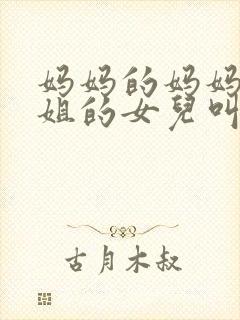 妈妈的妈妈
姐的女兒叫
古月木叔